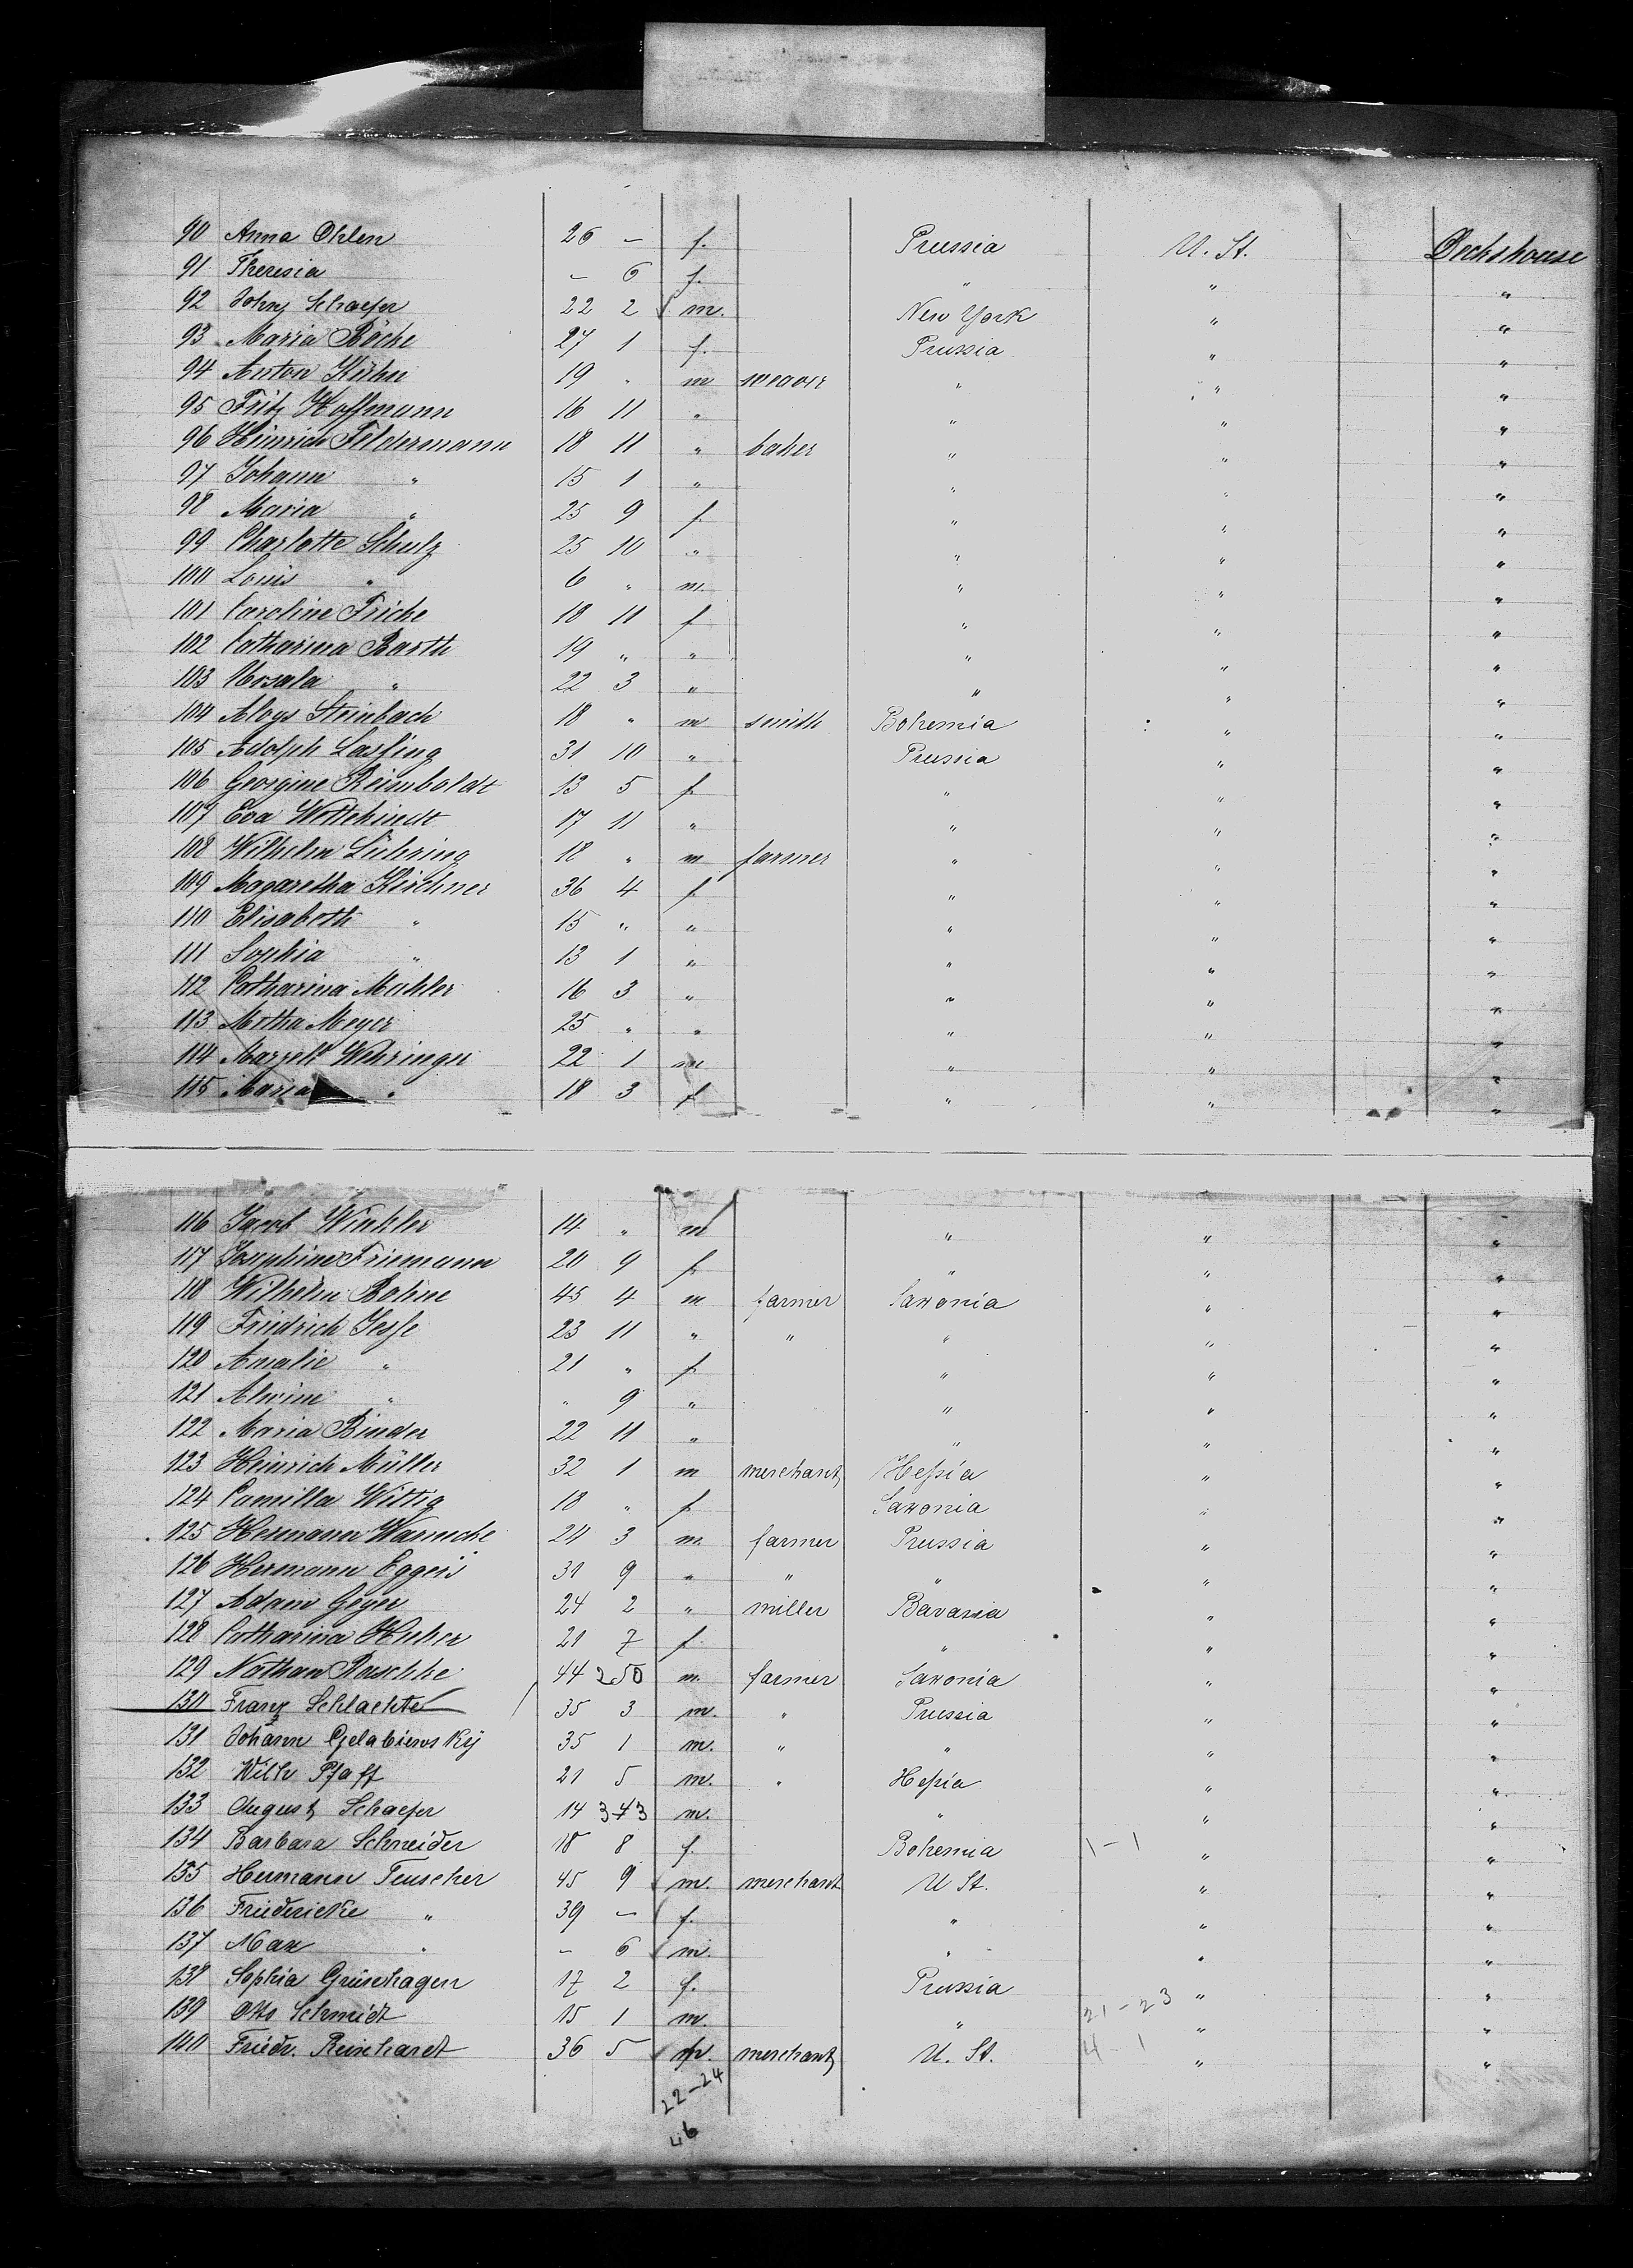 90 Anna Ohlen 26 – f. Prussia U. St. Deckshouse
91 Theresia – 6 f. " " "
92 John Schaefer 22 2 m. New York " "
93 Maria Böche 27 1 f. Prussia " "
94 Anton Kühn 19 " m weaver " " "
95 Fritz Hoffmann 16 11 " " " "
96 Heinrich Fildermann 18 11 " baker " " "
97 Johann " 15 1 " " " "
98 Maria " 25 9 f. " " "
99 Charlotte Schulz 25 10 " " " "
100 Louis " 6 " m. " " "
101 Caroline Friche 18 11 f " " "
102 Catharina Barth 19 " " " " "
103 Ursala " 22 3 " " " "
104 Aloys Steinbach 18 " m smith Bohemia " "
105 Adolph Lassing 31 10 " Prussia " "
106 Georgine Reimboldt 13 5 f " " "
107 Eva Wittehindt 17 11 " " " "
108 Wilhelm Lühring 18 " m farmer " " "
109 Magaretha Kirchner 36 4 f " " "
110 Elisabeth " 15 " " " " "
111 Sophia " 13 1 " " " "
112 Catharina Mahler 16 3 " " " "
113 Metha Meyer 25 " " " " "
114 Marzell Wehringer 22 1 m " " "
115 Maria " 18 3 f " " "
116 Jacob Winkler 14 " m " " "
117 Josephine Friemann 20 9 f " " "
118 Wilhelm Bohne 45 4 m farmer Saxonia " "
119 Friedrich Jesse 23 11 " " " " "
120 Amalie " 21 " f " " "
121 Alwine " " 9 " " " "
122 Maria Binder 22 11 " " " "
123 Heinrich Müller 32 1 m merchant Hessia " "
124 Camilla Wittig 18 " f Saxonia " "
125 Hermann Warnecke 24 3 m. farmer Prussia " "
126 Hermann Eggers 31 9 " " " " "
127 Adam Geyer 24 2 " miller Bavaria " "
128 Catharina Huher 21 7 f. " " "
129 Nathan Raschke 44 250 m. farmer Saxonia " "
130 Franz Schlachte 35 3 m. " Prussia " "
131 Johann 35 1 m. " " " "
132 Wilh Pfaff 21 5 m. " Hessia " "
133 August Schaefer 14 343 m. " " "
134 Barbara Schneider 18 8 f. Bohemia 1–1 " "
135 Hermann Teuscher 45 9 m. merchant U St. " "
136 Friedericke " 39 – f. " " "
137 Max " – 6 m. " " "
138 Sophia Grünhagen 17 2 f. Prussia " "
139 Otto Schmidt 15 1 m. " 21–23 " "
140 Friedr. Reinhardt 36 5 m. merchant U. St. 4–1 " "
22–24
46